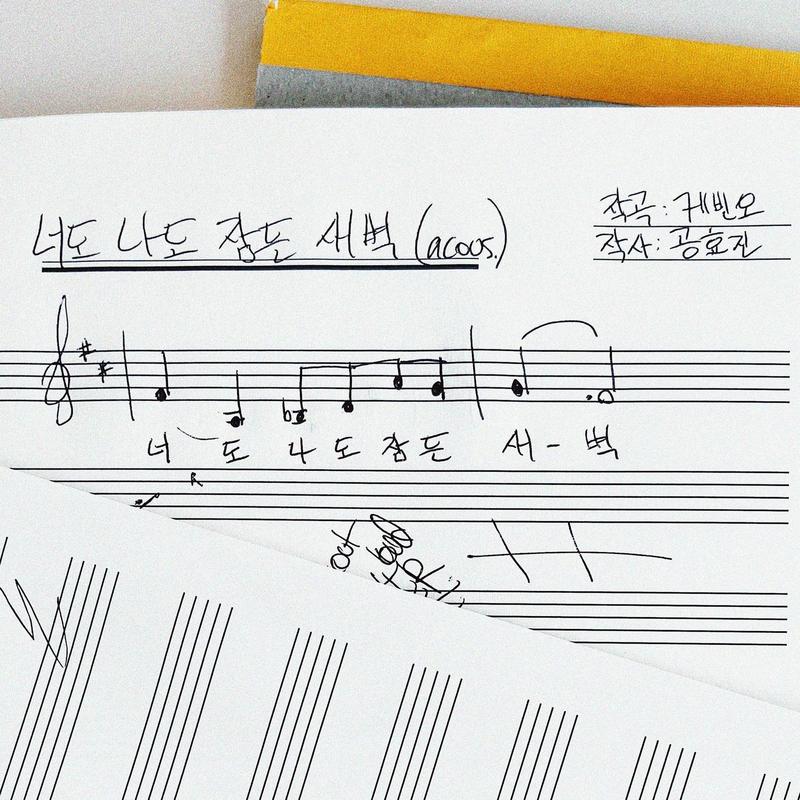 너도 나도 잠든 새벽 (acous.)
작곡: 케빈오
작사: 공효진
너 도 나 도 잠 든 새 - 벽